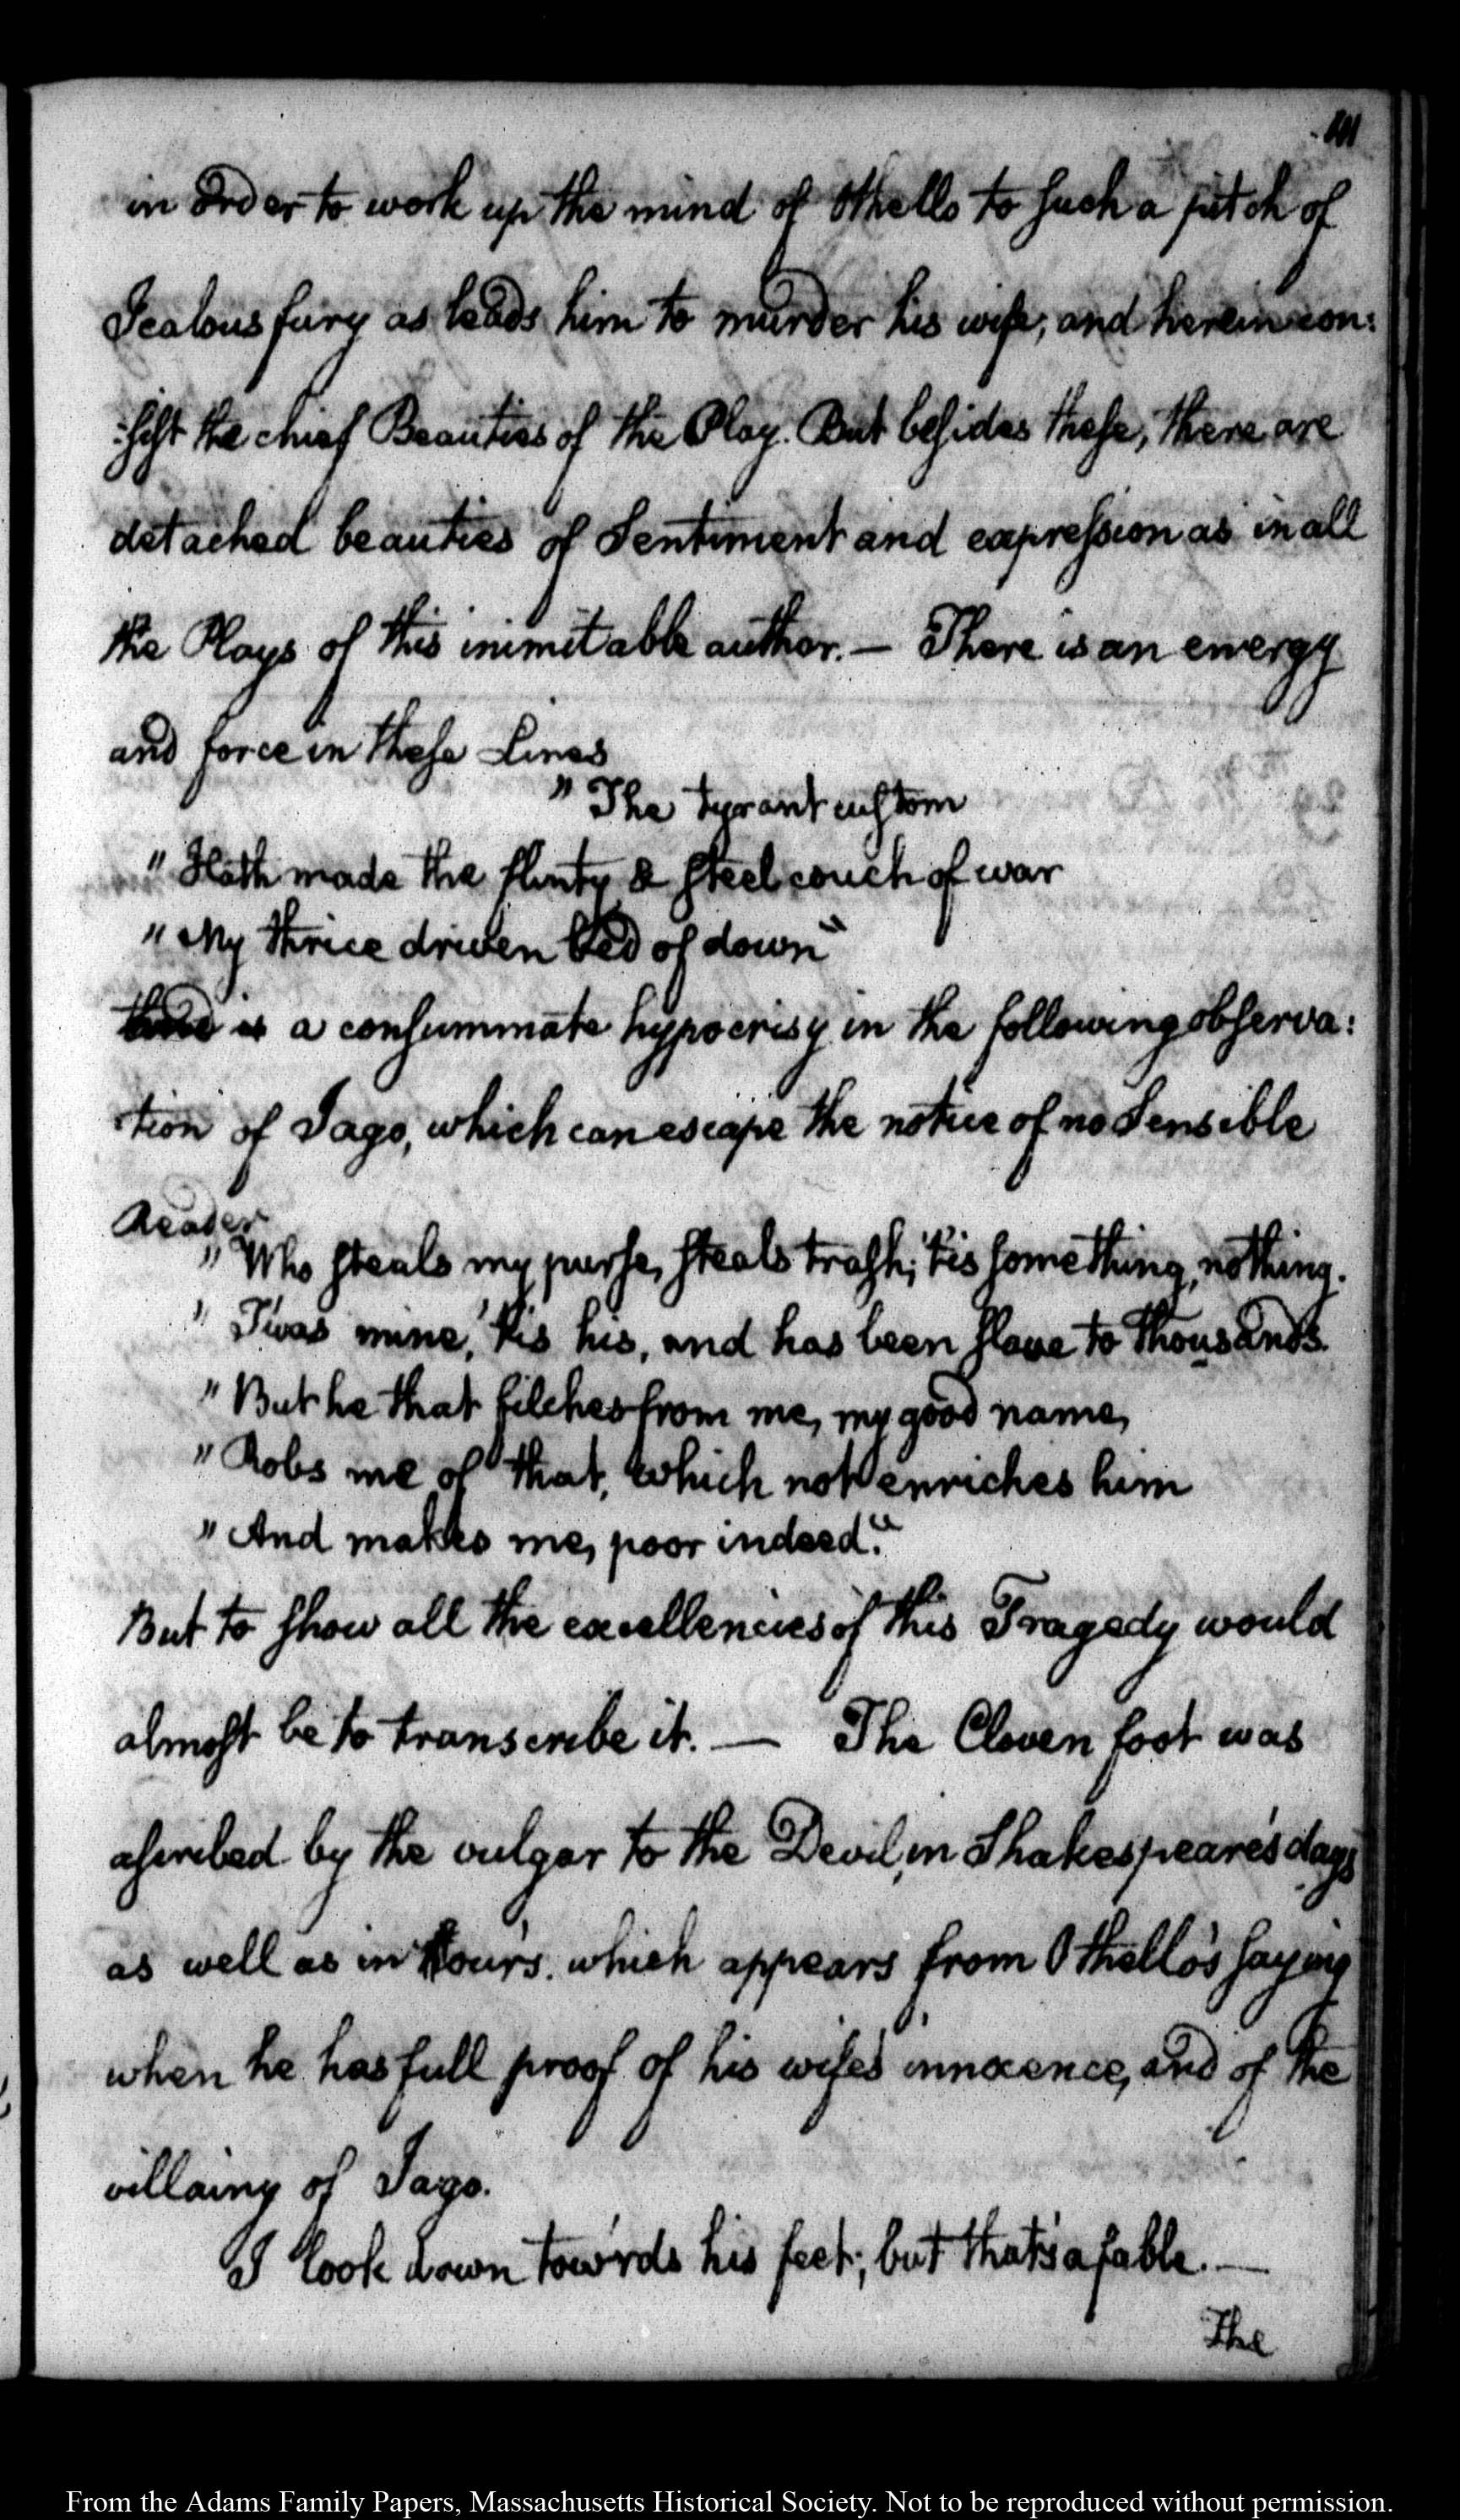 in Order to work up the mind of Othello to such a pitch of
Jealous fury as leads him to murder his wife; and herein con:
:sist the chief Beauties of the Play. But besides these, there are
detached beauties of Sentiment and expression as in all
the Plays of this inimitable author. — There is an energy
and force in these Lines
" The tyrant custom
" Hath made the flinty & steel couch of war
" My thrice driven bed of down"
is a consummate hypocrisy in the following observa:
:tion of Iago, which can escape the notice of no Sensible
Reader
" Who steals my purse, steals trash; 'tis something, nothing.
" Twas mine, 'tis his, and has been slave to thousands.
" But he that filches from me, my good name,
" Robs me of that, which not enriches him
" And makes me, poor indeed."
But to show all the excellencies of this Tragedy would
almost be to transcribe it. — The Cloven foot was
ascribed by the vulgar to the Devil, in Shakespeare's days
as well as in ours. which appears from Othello's saying
when he has full proof of his wife's innocence, and of the
villainy of Iago.
I look down tow'rds his feet; but that's a fable. —
The
From the Adams Family Papers, Massachusetts Historical Society. Not to be reproduced without permission.